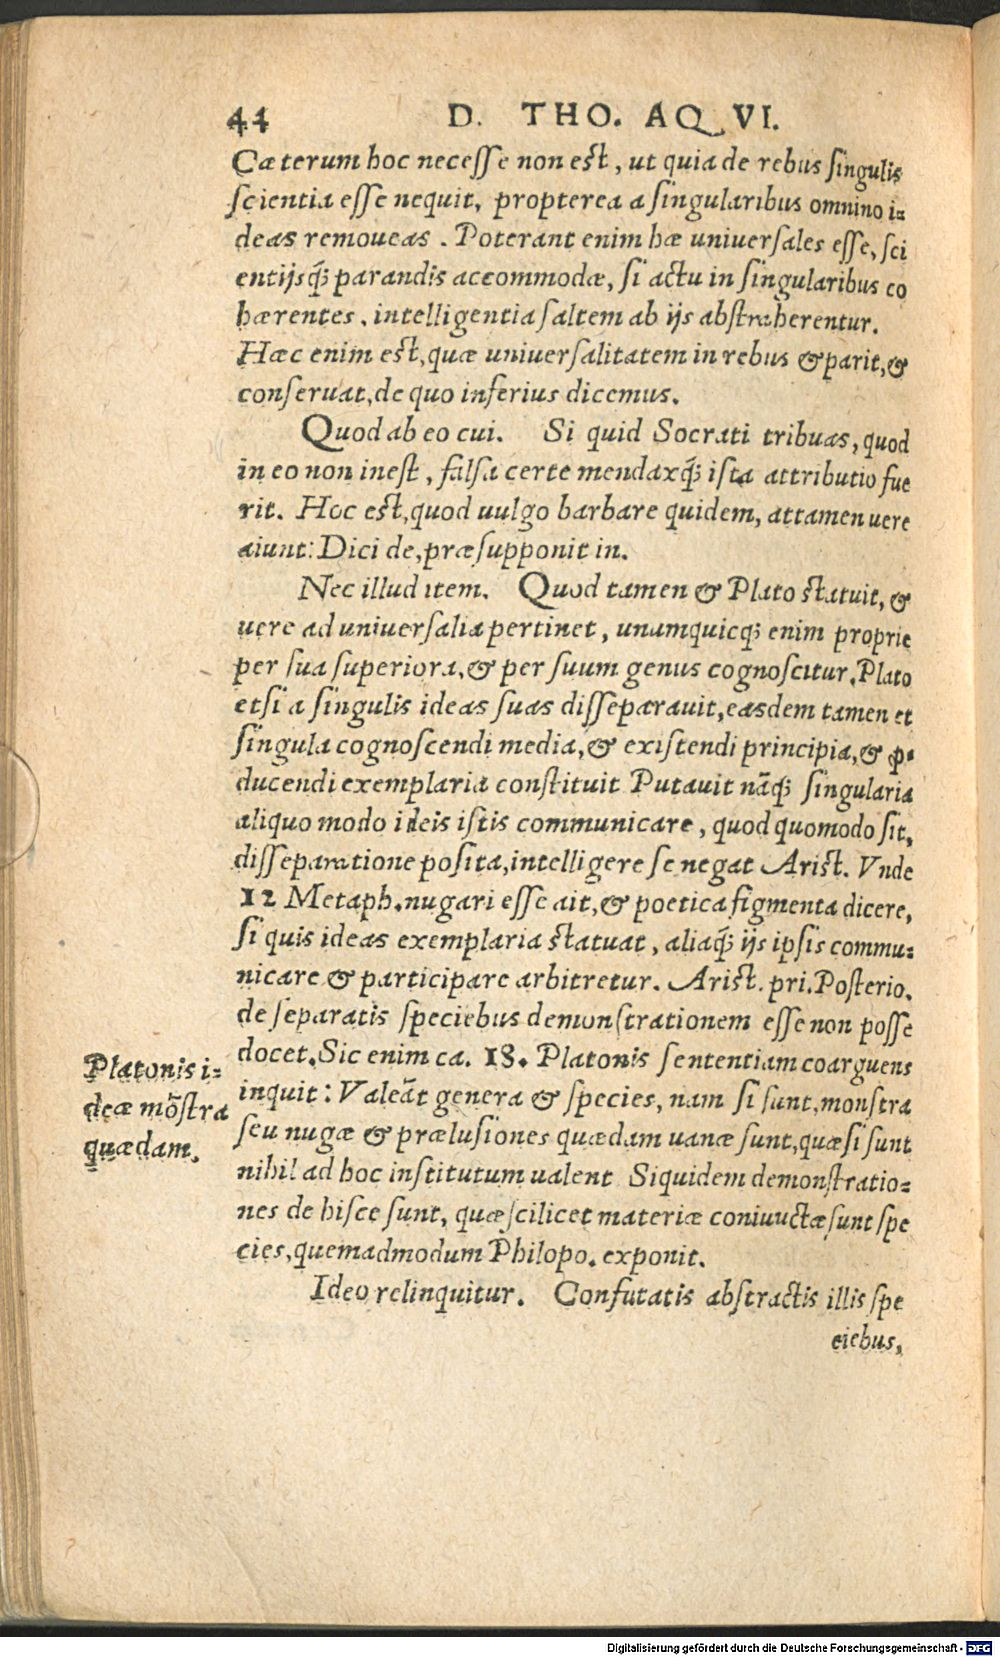 44 D. THO. AQVI.
Cæterum hoc necesse non est, ut quia de rebus singulis
scientia esse nequit, propterea a singularibus omnino i=
deas remoueas. Poterant enim hæ uniuersales esse, sci
entijsq́; parandis accommodæ, si actu in singularibus co
hærentes, intelligentia saltem ab ijs abstraherentur.
Hæc enim est, quæ uniuersalitatem in rebus & parit, &
conseruat, de quo inferius dicemus.
Quod ab eo cui. Si quid Socrati tribuas, quod
in eo non inest, falsa certe mendaxq́; ista attributio fue
rit. Hoc est, quod uulgo barbare quidem, attamen uere
aiunt: Dici de, præsupponit in.
Nec illud item. Quod tamen & Plato statuit, &
uere ad uniuersalia pertinet, unumquicq; enim proprie
per sua superiora, & per suum genus cognoscitur. Plato
etsi a singulis ideas suas disseparauit, easdem tamen et
singula cognoscendi media, & existendi principia, & ꝓ=
ducendi exemplaria constituit Putauit nāq́; singularia
aliquo modo ideis istis communicare, quod quomodo sit,
disseparatione posita, intelligere se negat Arist. Vnde
12 Metaph. nugari esse ait, & poetica figmenta dicere,
si quis ideas exemplaria statuat, aliaq́; ijs ipsis commu=
nicare & participare arbitretur. Arist. pri. Posterio.
de separatis speciebus demonstrationem esse non posse
docet. Sic enim ca. 18. Platonis sententiam coarguens
inquit: Valeāt genera & species, nam si sunt, monstra
seu nugæ & prælusiones quædam uanæ sunt, quæ si sunt
nihil ad hoc institutum ualent Siquidem demonstratio=
nes de hisce sunt, quæ scilicet materiæ coniuuctæ sunt spe
cies, quemadmodum Philopo. exponit.
Ideo relinquitur. Confutatis abstractis illis spe
ciebus,
Platonis i=
deæ mōstra
quædam.
Digitalisierung gefördert durch die Deutsche Forschungsgemeinschaft - DFG